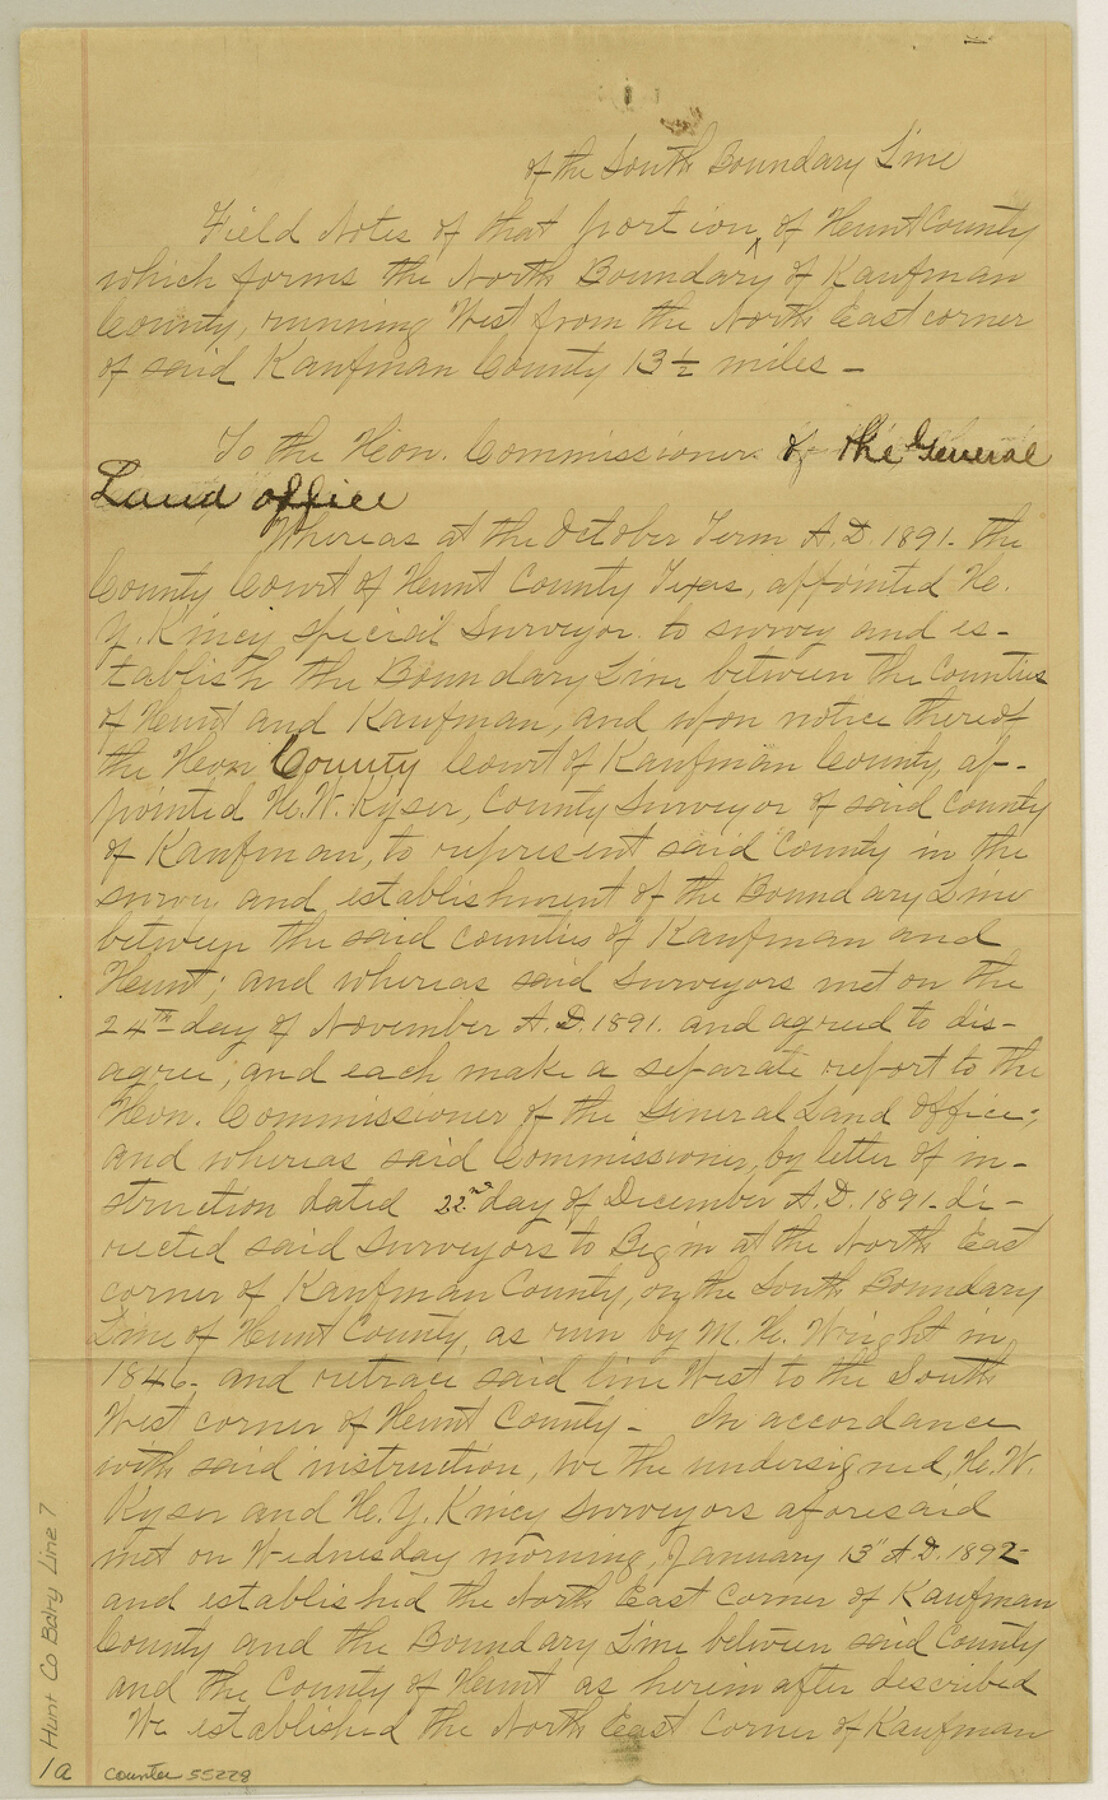 of the South Boundary Line
Field Notes of that portion ^ of Hunt County
which forms the North Boundary of Kaufman
County, running West from the North East corner
of said Kaufman County 13 1/2 miles -
To the Hon. Commissioner of the General
Land office
Whereas at the October Term A.D. 1891. the
County Court of Hunt County Texas, appointed H.
Y. Kincy special Surveyor to survey and es-
tablish the Boundary Line between the Counties
of Hunt and Kaufman, and upon notice thereof
the Hon County Court of Kaufman County, ap-
pointed H. W. Kyser, County Surveyor of said County
of Kaufman, to represent said County in the
survey and establishment of the Boundary Line
between the said Counties of Kaufman and
Hunt; and whereas said Surveyors met on the
24th day of November A.D. 1891. and agreed to dis-
agree, and each make a separate report to the
Hon. Commissioner of the General Land Office;
and whereas said Commissioner, by letter of in-
struction dated 22nd day of December A.D. 1891. di-
rected said Surveyors to Begin at the North East
corner of Kaufman County, on the South Boundary
Line of Hunt County, as run by M. H. Wright in
1846. and retrace said line West to the South
West corner of Hunt County - In accordance
with said instruction, we the undersigned, H. W.
Kyser and H. Y. Kincy Surveyors aforesaid
met on Wednesday morning, January 13" A.D. 1892-
and established the North East Corner of Kaufman
County and the Boundary Line between said County
and the County of Hunt as herein after described
We established the North East Corner of Kaufman
Hunt Co Bdry Line 7
1a
counter 55228